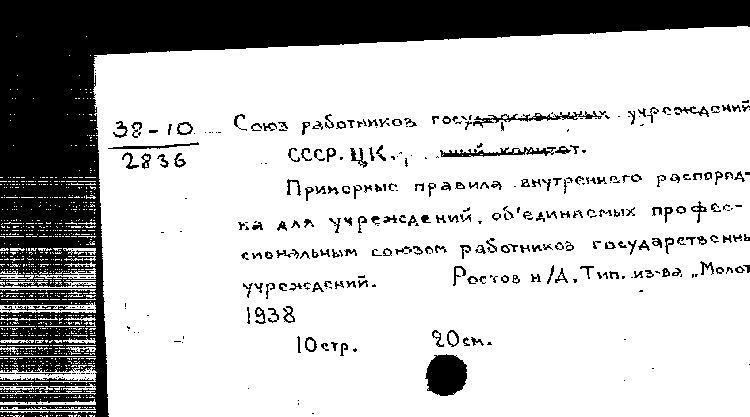 38-10
2836
Союз работников государственных учреждений
СССР. ЦК.
Примерные правила внутреннего распоряд-
ка для учреждений, об'единяемых профес-
сиональным союзом работников государственны
учреждений. Ростов н/Д, Тип. из-ва „Молот
1938
10 стр. 20 см.